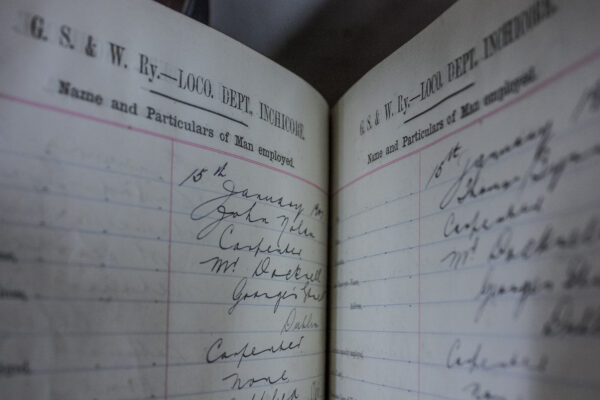 G. S. & W. Ry.—LOCO. DEPT., INCHICORE.
Name and Particulars of Man employed.
15th January
John Nolan
Carpenter
Mr. Dockrell
George's Street
Dublin
Carpenter
None
G. S. & W. Ry.—LOCO. DEPT., INCHICORE.
Name and Particulars of Man employed.
15th January
Thomas Byrne
Carpenter
Mr. Dockrell
George's
Dublin
Carpenter